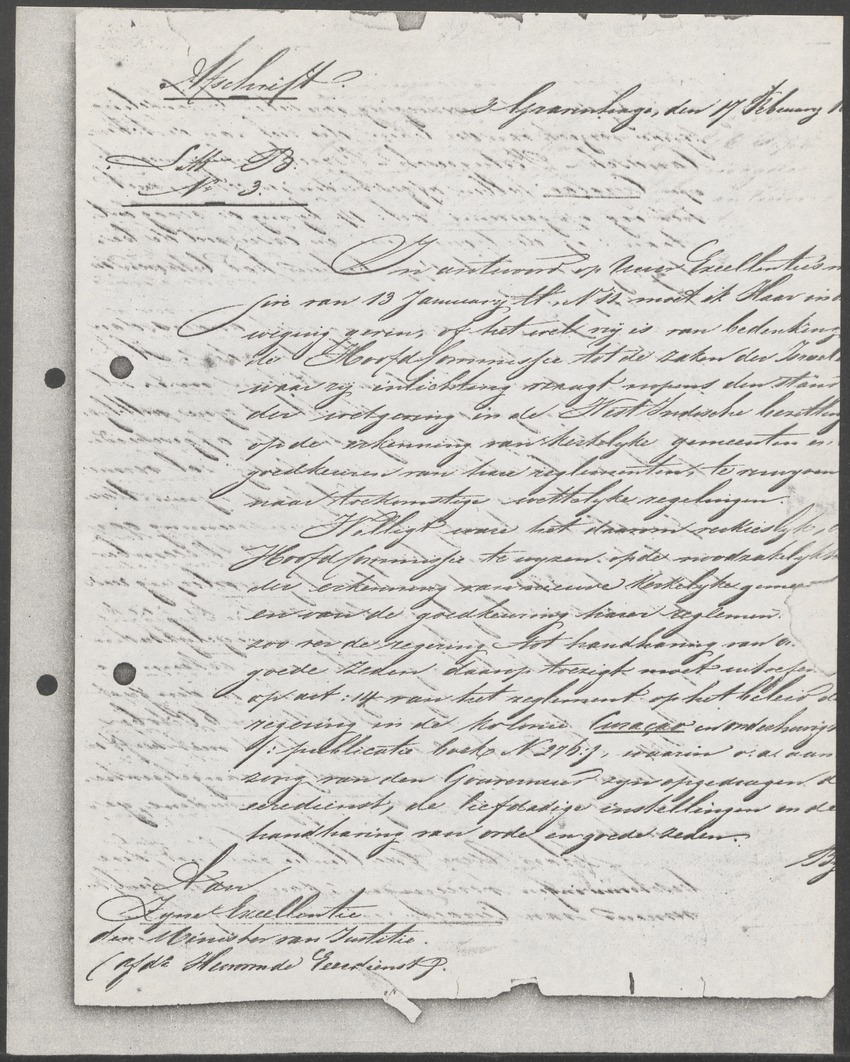 Afschrift.
's Gravenhage, den 17 February 1
Litt. B.
No. 3.
In antwoord op Uwer Excellentie's m
sive van 13 January ll. No 12 moet ik Haar in o
weging geven, of het wel vrij is van bedenking
de Hoofdcommissie tot de zaken der Israel
waar zij inlichting vraagt nopens den stand
der wetgeving in de West Indische bezitting
op de erkenning van kerkelyke gemeenten en
goedkeuren van hare reglementen, te verwyzen
naar toekomstige wettelyke regelingen.
Welligt ware het daarom verkieslyk,
Hoofdcommissie te wyzen op de noodzakelykh
der erkenning van nieuwe Kerkelyke gemee
en van de goedkeuring harer reglemen
zoo ver de regering tot handhaving van o
goede zeden daarop toezigt moet uitoefen
op art: 14 van het reglement op het beleid d
regering in de kolonie Curaçao en onderhoorigh
(: publicatie boek No 276:), waarin o.a. aan
zorg van den Gouverneur zyn opgedragen d
eeredienst, de liefdadige instellingen en de
handhaving van orde en goede zeden.
By
Aan
Zyne Excellentie
den Minister van Justitie.
(afdg Hervormde Eeredienst).